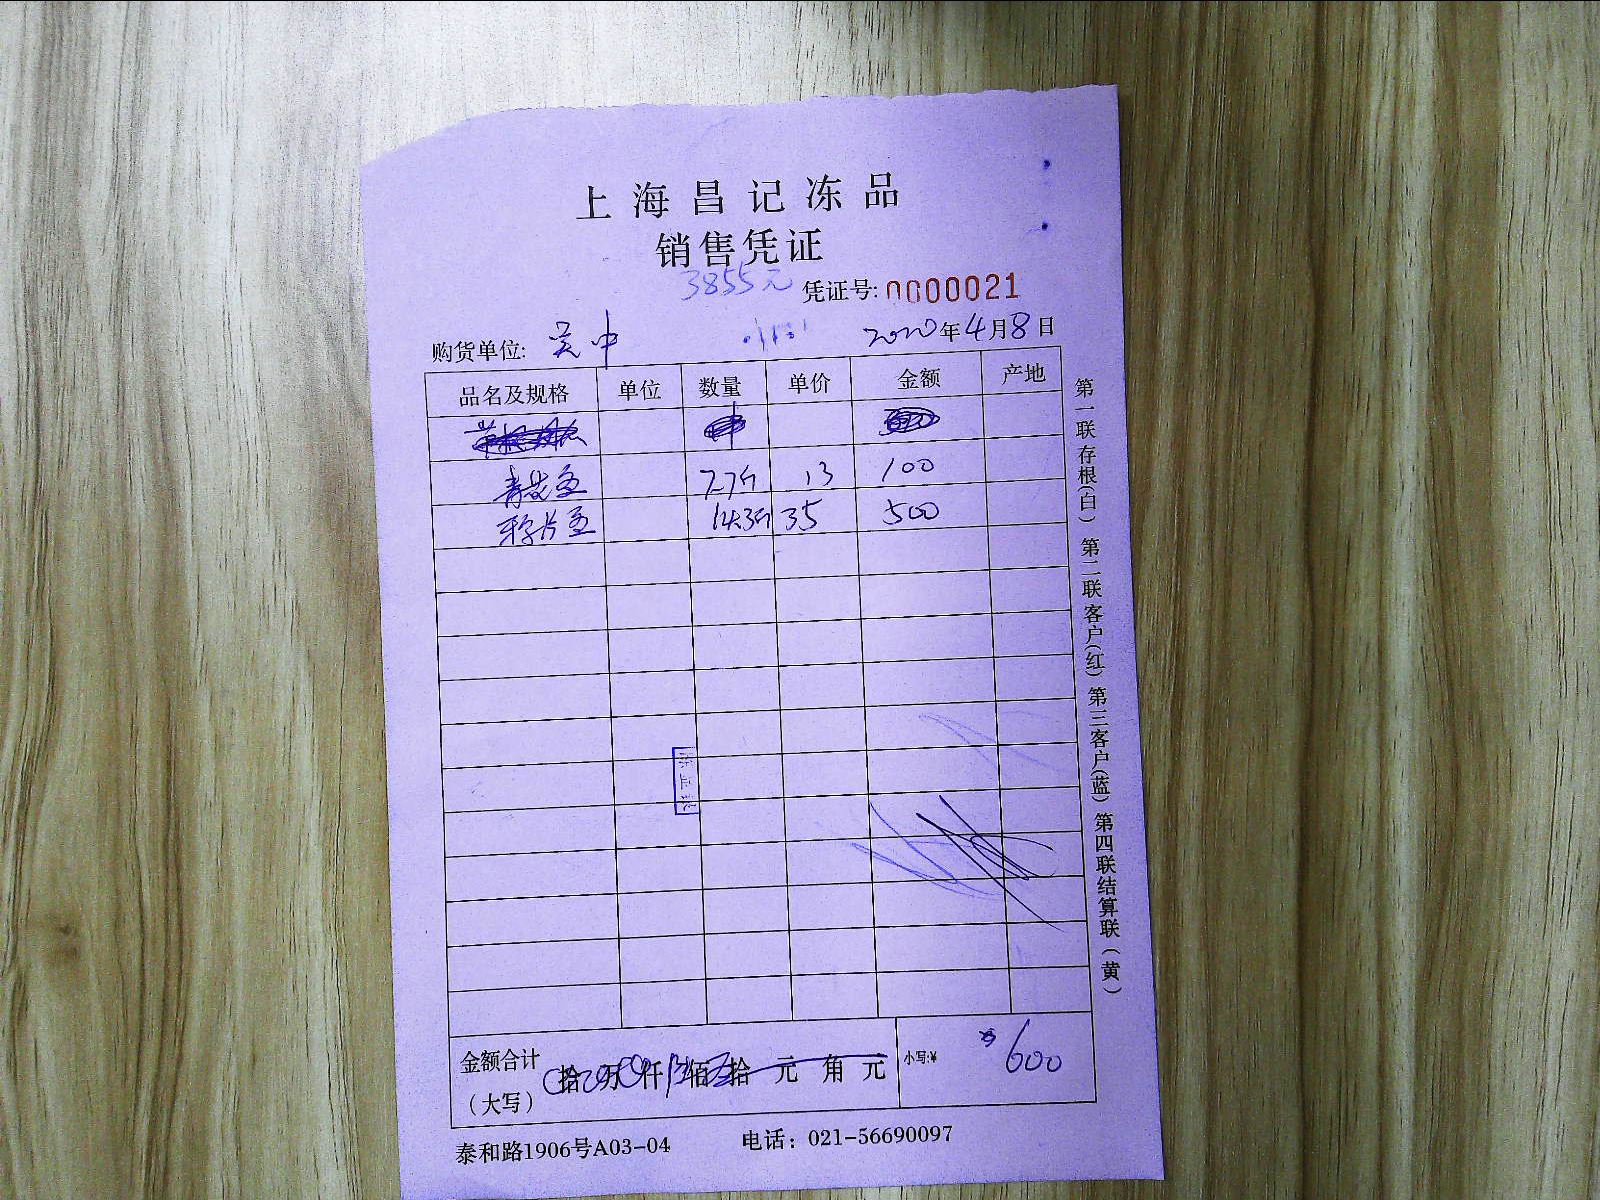 上海昌记冻品
销售凭证
3855元
凭证号: 0000021
购货单位: 吴中 2020年4月8日
品名及规格 单位 数量 单价 金额 产地
7.7斤 13 100
14.3斤 35 500
金额合计 拾 万 仟 佰 拾 元 角 元 小写:¥ 600
(大写)
泰和路1906号A03-04 电话: 021-56690097
第一联存根(白) 第二联客户(红) 第三客户(蓝) 第四联结算联(黄)